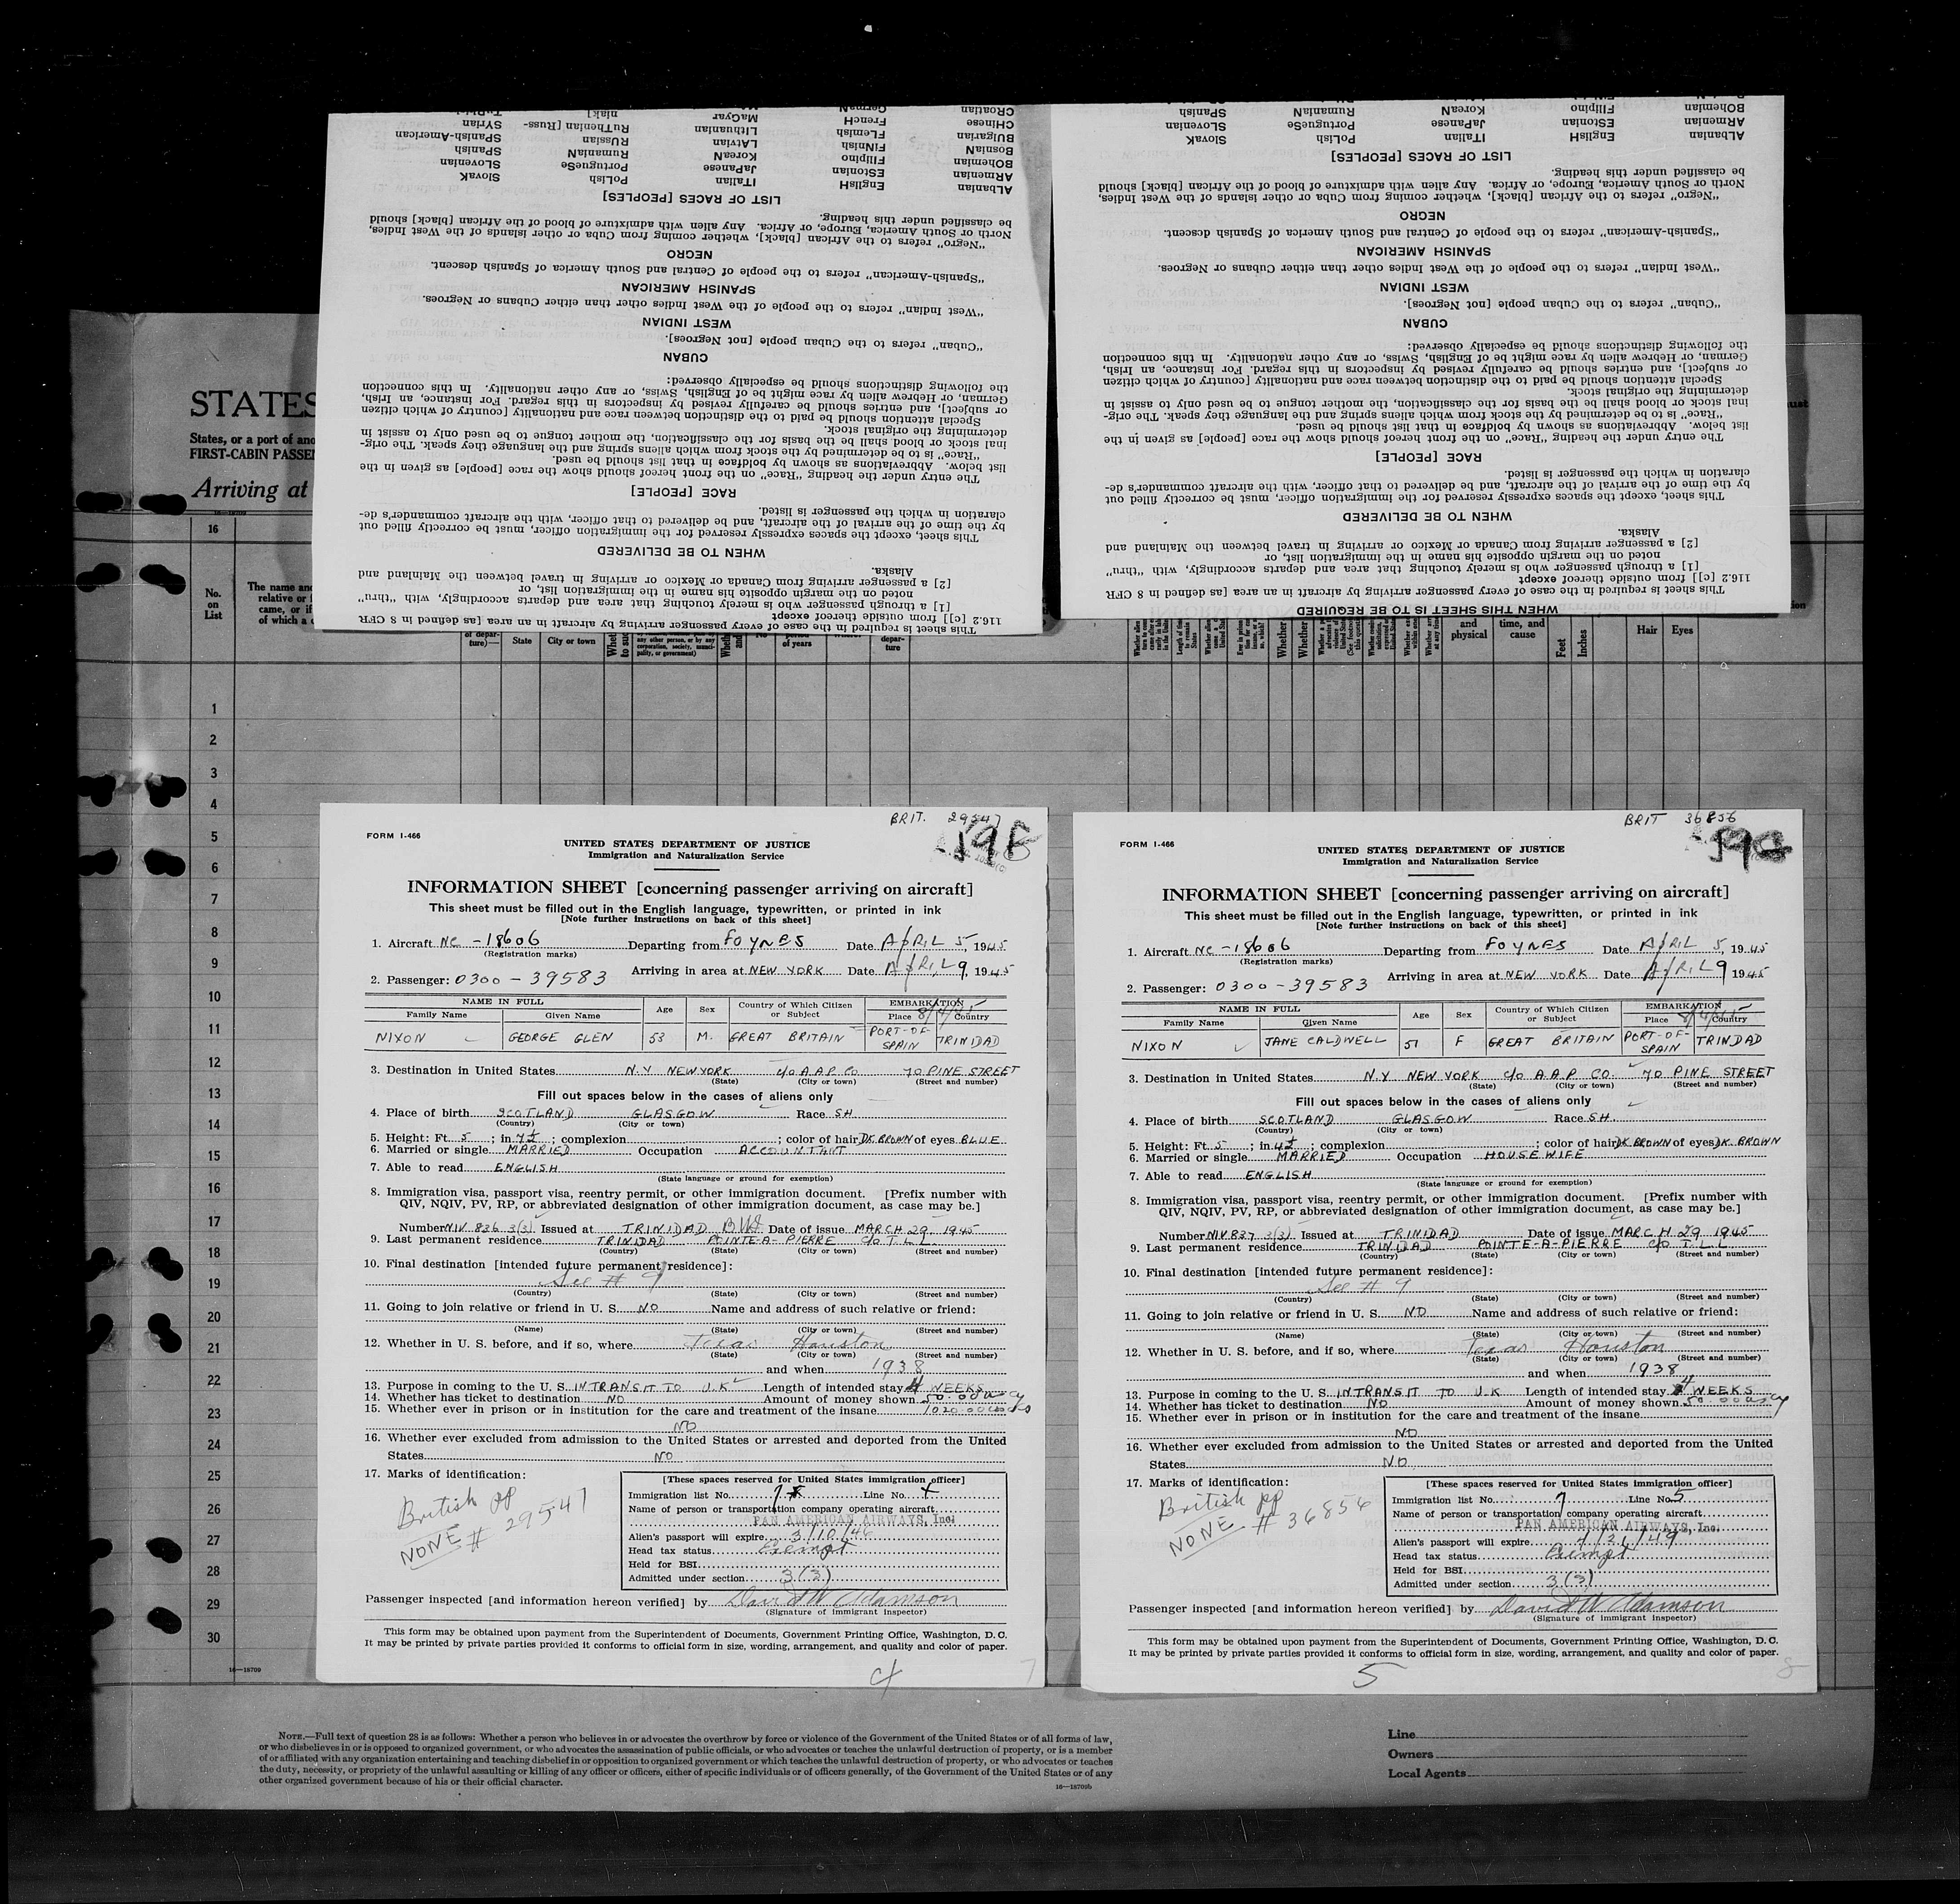 STATES
States, or a port of
FIRST-CABIN
Arriving at
16
No.
on
List
This sheet is required in the case of every passenger arriving by aircraft in an area [as defined in 8 CFR
116.2 [c]] from outside thereof except
[1] a through passenger who is merely touching that area and departs accordingly, with "thru"
noted on the margin opposite his name in the immigration list, or
[2] a passenger arriving from Canada or Mexico or arriving in travel between the Mainland and
Alaska.
WHEN TO BE DELIVERED
This sheet, except the spaces expressly reserved for the immigration officer, must be correctly filled out
by the time of the arrival of the aircraft, and be delivered to that officer, with the aircraft commander's de-
claration in which the passenger is listed.
RACE [PEOPLE]
The entry under the heading "Race" on the front hereof should show the race [people] as given in the
list below. Abbreviations as shown by boldface in that list should be used.
"Race" is to be determined by the stock from which aliens spring and the language they speak. The orig-
inal stock or blood shall be the basis for the classification, the mother tongue to be used only to assist in
determining the original stock.
Special attention should be paid to the distinction between race and nationality [country of which citizen
or subject], and entries should be carefully revised by inspectors in this regard. For instance, an Irish,
German, or Hebrew alien by race might be of English, Swiss, or any other nationality. In this connection
the following distinctions should be especially observed:
CUBAN
"Cuban" refers to the Cuban people [not Negroes].
WEST INDIAN
"West Indian" refers to the people of the West Indies other than either Cubans or Negroes.
SPANISH AMERICAN
"Spanish-American" refers to the people of Central and South America of Spanish descent.
NEGRO
"Negro" refers to the African [black], whether coming from Cuba or other islands of the West Indies,
North or South America, Europe, or Africa. Any alien with admixture of blood of the African [black] should
be classified under this heading.
LIST OF RACES [PEOPLES]
ALbanian EnglisH ITalian PoLish SlovaK
ARmenian EStonian JaPanese PortugueSe SLovenian
BOhemian Filipino KoreaN RumaniaN SPanish
BosniaN FINnish LAtvian RUssian SPanish-American
BUlgarian FLemish LIthuanian RuThenian [Russ- SYrian
CHinese FrencH MaGyar niak]
CRoatian GermaN
WHEN THIS SHEET IS TO BE REQUIRED
This sheet is required in the case of every passenger arriving by aircraft in an area [as defined in 8 CFR
116.2 [c]] from outside thereof except
[1] a through passenger who is merely touching that area and departs accordingly, with "thru"
noted on the margin opposite his name in the immigration list, or
[2] a passenger arriving from Canada or Mexico or arriving in travel between the Mainland and
Alaska.
WHEN TO BE DELIVERED
This sheet, except the spaces expressly reserved for the immigration officer, must be correctly filled out
by the time of the arrival of the aircraft, and be delivered to that officer, with the aircraft commander's de-
claration in which the passenger is listed.
RACE [PEOPLE]
The entry under the heading "Race" on the front hereof should show the race [people] as given in the
list below. Abbreviations as shown by boldface in that list should be used.
"Race" is to be determined by the stock from which aliens spring and the language they speak. The orig-
inal stock or blood shall be the basis for the classification, the mother tongue to be used only to assist in
determining the original stock.
Special attention should be paid to the distinction between race and nationality [country of which citizen
or subject], and entries should be carefully revised by inspectors in this regard. For instance, an Irish,
German, or Hebrew alien by race might be of English, Swiss, or any other nationality. In this connection
the following distinctions should be especially observed:
CUBAN
"Cuban" refers to the Cuban people [not Negroes].
WEST INDIAN
"West Indian" refers to the people of the West Indies other than either Cubans or Negroes.
SPANISH AMERICAN
"Spanish-American" refers to the people of Central and South America of Spanish descent.
NEGRO
"Negro" refers to the African [black], whether coming from Cuba or other islands of the West Indies,
North or South America, Europe, or Africa. Any alien with admixture of blood of the African [black] should
be classified under this heading.
LIST OF RACES [PEOPLES]
ALbanian EnglisH ITalian PoLish SlovaK
ARmenian EStonian JaPanese PortugueSe SLovenian
BOhemian Filipino KoreaN RumaniaN SPanish
State City or town
physical
time, and
cause
Feet
Inches
Hair Eyes
1
2
3
4
5
6
7
8
9
10
11
12
13
14
15
16
17
18
19
20
21
22
23
24
25
26
27
28
29
30
16—18709
BRIT. 29547
FORM I-466
UNITED STATES DEPARTMENT OF JUSTICE
Immigration and Naturalization Service
INFORMATION SHEET [concerning passenger arriving on aircraft]
This sheet must be filled out in the English language, typewritten, or printed in ink
[Note further instructions on back of this sheet]
1. Aircraft NC -18606 Departing from FOYNES Date APRIL 5, 1945
(Registration marks)
Arriving in area at NEW YORK Date APRIL 9, 1945
2. Passenger: 0300 - 39583
NAME IN FULL Age Sex Country of Which Citizen or Subject EMBARKATION
Family Name Given Name Place Country
8/4/45
NIXON GEORGE GLEN 53 M. GREAT BRITAIN PORT-OF-SPAIN TRINIDAD
3. Destination in United States N.Y NEW YORK c/o A.A.P Co. 70 PINE STREET
(State) (City or town) (Street and number)
Fill out spaces below in the cases of aliens only
4. Place of birth SCOTLAND GLASGOW Race SH.
(Country) (City or town)
5. Height: Ft. 5; in 7½; complexion ; color of hair DK BROWN of eyes BLUE
6. Married or single MARRIED Occupation ACCOUNTANT
7. Able to read ENGLISH
(State language or ground for exemption)
8. Immigration visa, passport visa, reentry permit, or other immigration document. [Prefix number with
QIV, NQIV, PV, RP, or abbreviated designation of other immigration document, as case may be.]
Number NIV 836 3(3) Issued at TRINIDAD BWI Date of issue MARCH 29. 1945
9. Last permanent residence TRINIDAD POINTE-A-PIERRE C/o T.L.L.
(Country) (State) (City or town) (Street and number)
10. Final destination [intended future permanent residence]:
See # 9
(Country) (State) (City or town) (Street and number)
11. Going to join relative or friend in U. S. NO Name and address of such relative or friend:
(Name) (State) (City or town) (Street and number)
12. Whether in U. S. before, and if so, where Texas Houston
(State) (City or town) (Street and number)
and when 1938
13. Purpose in coming to the U. S. INTRANSIT TO U.K Length of intended stay 4 WEEKS
14. Whether has ticket to destination NO Amount of money shown 50.00
15. Whether ever in prison or in institution for the care and treatment of the insane 1020.00
NO
16. Whether ever excluded from admission to the United States or arrested and deported from the United
States NO
17. Marks of identification:
British pp
NONE # 29547
[These spaces reserved for United States immigration officer]
Immigration list No. 7 Line No. 4
Name of person or transportation company operating aircraft
PAN AMERICAN AIRWAYS, Inc.
Alien's passport will expire 3/10/46
Head tax status Exempt
Held for BSI
Admitted under section 3(3)
Passenger inspected [and information hereon verified] by David W Adamson
(Signature of immigrant inspector)
This form may be obtained upon payment from the Superintendent of Documents, Government Printing Office, Washington, D. C.
It may be printed by private parties provided it conforms to official form in size, wording, arrangement, and quality and color of paper.
4
7
BRIT 36856
FORM I-466
UNITED STATES DEPARTMENT OF JUSTICE
Immigration and Naturalization Service
INFORMATION SHEET [concerning passenger arriving on aircraft]
This sheet must be filled out in the English language, typewritten, or printed in ink
[Note further instructions on back of this sheet]
1. Aircraft NC -18606 Departing from FOYNES Date APRIL 5, 1945
(Registration marks)
Arriving in area at NEW YORK Date APRIL 9 1945
2. Passenger: 0300 - 39583
NAME IN FULL Age Sex Country of Which Citizen or Subject EMBARKATION
Family Name Given Name Place Country
8/4/45
NIXON JANE CALDWELL 51 F GREAT BRITAIN PORT-OF-SPAIN TRINIDAD
3. Destination in United States N.Y NEW YORK C/o A.A.P CO. 70 PINE STREET
(State) (City or town) (Street and number)
Fill out spaces below in the cases of aliens only
4. Place of birth SCOTLAND GLASGOW Race SH.
(Country) (City or town)
5. Height: Ft. 5; in 4½; complexion ; color of hair DK BROWN of eyes DK. BROWN
6. Married or single MARRIED Occupation HOUSEWIFE
7. Able to read ENGLISH
(State language or ground for exemption)
8. Immigration visa, passport visa, reentry permit, or other immigration document. [Prefix number with
QIV, NQIV, PV, RP, or abbreviated designation of other immigration document, as case may be.]
Number NIV 837 3(3) Issued at TRINIDAD Date of issue MARCH 29 1945
9. Last permanent residence TRINIDAD POINTE-A-PIERRE C/o T.L.L.
(Country) (State) (City or town) (Street and number)
10. Final destination [intended future permanent residence]:
See # 9
(Country) (State) (City or town) (Street and number)
11. Going to join relative or friend in U. S. NO Name and address of such relative or friend:
(Name) (State) (City or town) (Street and number)
12. Whether in U. S. before, and if so, where Texas Houston
(State) (City or town) (Street and number)
and when 1938
13. Purpose in coming to the U. S. INTRANSIT TO U.K Length of intended stay 4 WEEKS
14. Whether has ticket to destination NO Amount of money shown 50.00
15. Whether ever in prison or in institution for the care and treatment of the insane
NO
16. Whether ever excluded from admission to the United States or arrested and deported from the United
States NO.
17. Marks of identification:
British pp
NONE # 36856
[These spaces reserved for United States immigration officer]
Immigration list No. 7 Line No. 5
Name of person or transportation company operating aircraft
PAN AMERICAN AIRWAYS, Inc.
Alien's passport will expire
Head tax status Exempt
Held for BSI
Admitted under section 3(3)
Passenger inspected [and information hereon verified] by David W Adamson
(Signature of immigrant inspector)
This form may be obtained upon payment from the Superintendent of Documents, Government Printing Office, Washington, D. C.
It may be printed by private parties provided it conforms to official form in size, wording, arrangement, and quality and color of paper.
5
8
NOTE.—Full text of question 28 is as follows: Whether a person who believes in or advocates the overthrow by force or violence of the Government of the United States or of all forms of law,
or who disbelieves in or is opposed to organized government, or who advocates the assassination of public officials, or who advocates or teaches the unlawful destruction of property, or is a member
of or affiliated with any organization entertaining and teaching disbelief in or opposition to organized government or which teaches the unlawful destruction of property, or who advocates or teaches
the duty, necessity, or propriety of the unlawful assaulting or killing of any officer or officers, either of specific individuals or of officers generally, of the Government of the United States or of any
other organized government because of his or their official character.
16—18709b
Line
Owners
Local Agents